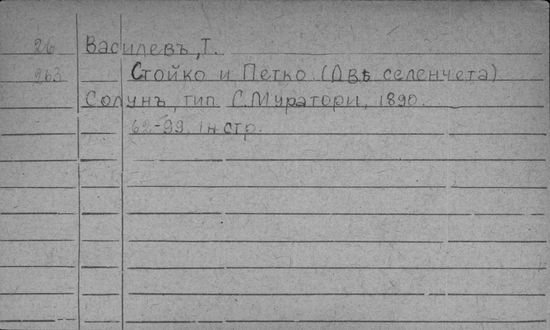 26 Василевъ, Т.
263 Стойко и Петко (Двѣ селенчета)
Солунъ, тип. С. Муратори, 1890.
62-99, 1н стр.